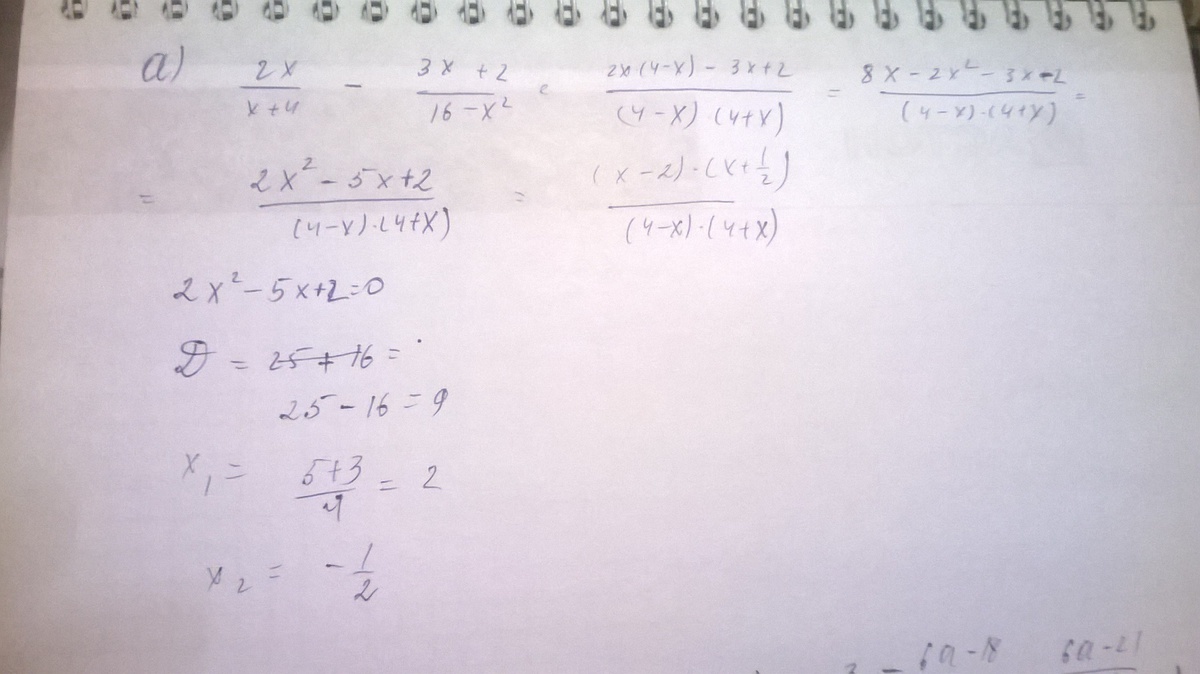 а) 2x/(x+4) - (3x+2)/(16-x²) = (2x(4-x)-3x+2)/((4-x)·(4+x)) = (8x-2x²-3x-2)/((4-x)·(4+x)) =
= (2x²-5x+2)/((4-x)·(4+x)) = ((x-2)·(x+1/2))/((4-x)·(4+x))
2x²-5x+2=0
D = 25+16=
25-16=9
x₁ = (5+3)/4 = 2
x₂ = -1/2
6a-18 6a-21